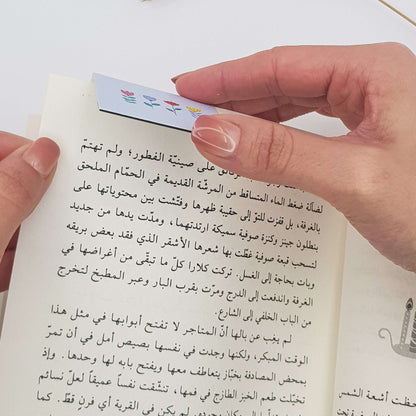 وثائق على صينيّة الفطور؛ ولم تهتمّ
لضآلة ضغط الماء المتساقط من المرشّة القديمة في الحمّام الملحق
بالغرفة، بل قفزت للتوّ إلى حقيبة ظهرها وفتّشت بين محتوياتها على
بنطلون جينز وكنزة صوفية سميكة ارتدتهما، ومدّت يدها من جديد
لتسحب قبعة صوفية غطّت بها شعرها الأشقر الذي فقد بعض بريقه
وبات بحاجة إلى الغسل. تركت كلارا كلّ ما تبقّى من أغراضها في
الغرفة واندفعت إلى الدرج ومرّت بقرب البار وعبر المطبخ لتخرج
من الباب الخلفي إلى الشارع.
لم يغب عن بالها أنّ المتاجر لا تفتح أبوابها في مثل هذا
الوقت المبكر، ولكنها وجدت في نفسها بصيص أمل في أن تمرّ
بمحض المصادفة بخبّاز يتعاطف معها ويفتح بابه لها وحدها. وإذ
تخيّلت طعم الخبز الطازج في فمها، تنشّقت نفساً عميقاً لعلّ نسائم
لم يكن في القرية أي فرن قطّ. كما
سطعت أشعة الشمس